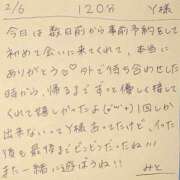 2/6 120分 Y様
今日は数日前から事前予約をして
初めて会いに来てくれて、本当に
ありがとう♡外で待ち合わせした
時から、帰るまでずっと優しく接して
くれて嬉しかったよ(*^^*)1回しか
出来ない…ってY様言ってたけど、イった
後も最後までビンビンだったね!!
また一緒に遊ぼうね!!
みと